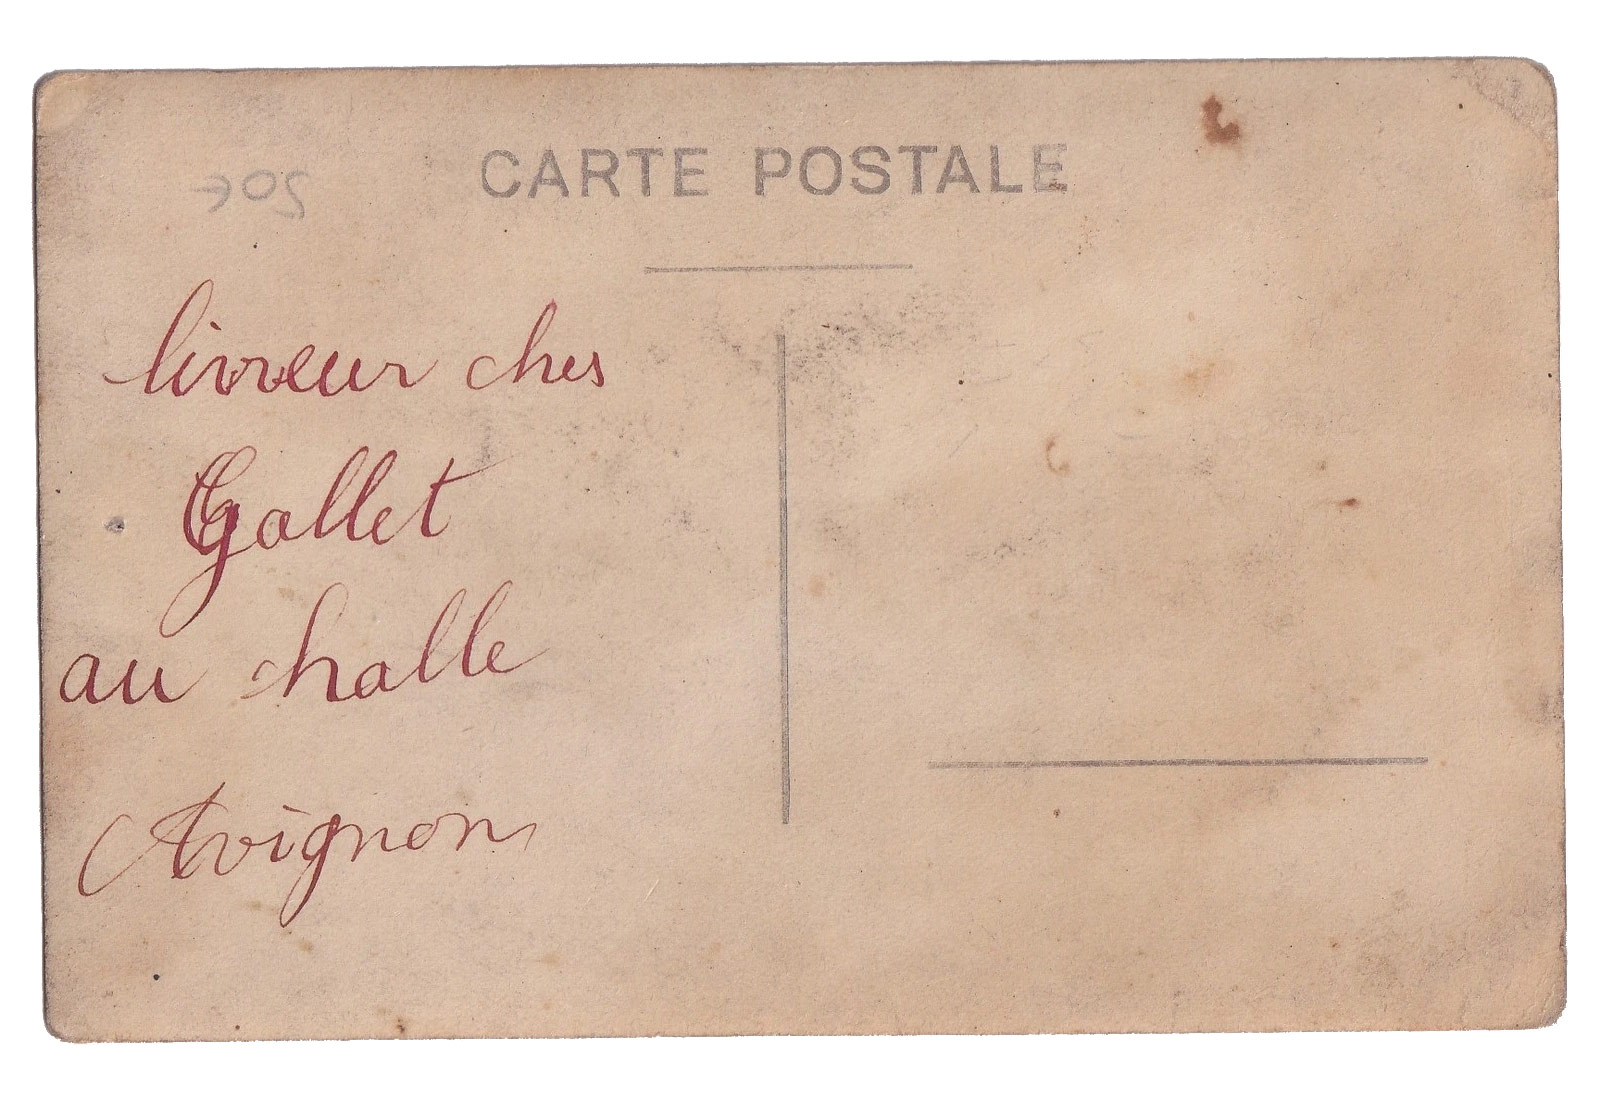 CARTE POSTALE
livreur ches
Gallet
au halle
Avignon